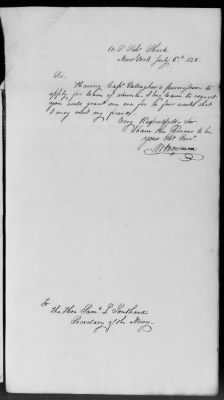 U.S. Schr. Shark
New York July 6th. 1828.
Sir.
Having Capt. Gallagher's permission to
apply for leave of absence. I beg leave to request
you will grant me one for two weeks that
I may visit my friends.
Very Respectfully Sir
I have the Honour to be
your Obt. Servt.
To
The Hon. Saml. L. Southard
Secretary of the Navy.